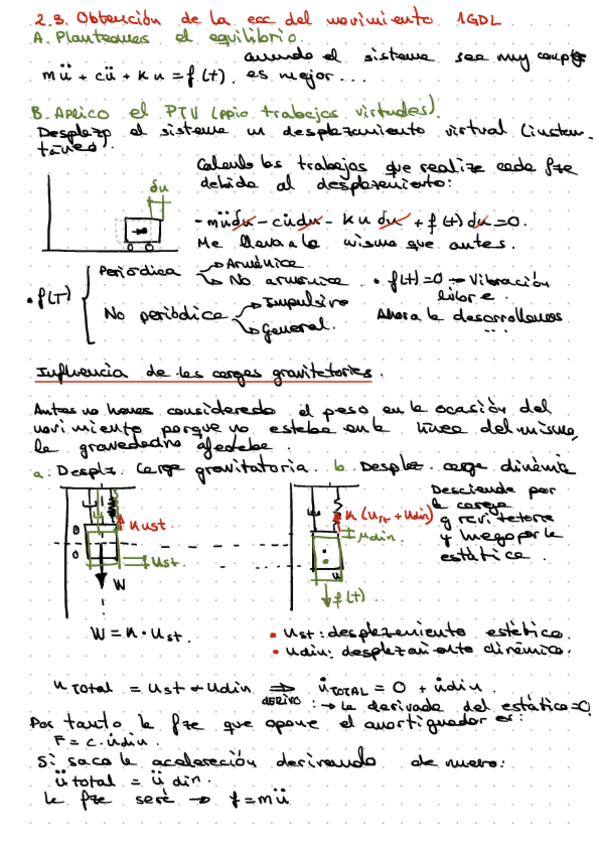 2.3. Obtención de la ecc del movimiento 1GDL
A. Planteamos el equilibrio.
cuando el sistema sea muy complejo
mü + cu̇ + ku = f(t). es mejor...
B. Aplico el PTV (ppio trabajos virtuales).
Desplazo el sistema un desplazamiento virtual (instan-
táneo).
Calculo los trabajos que realiza cada fza
debida al desplazamiento:
δu
-müδu - cu̇δu - kuδu + f(t)δu = 0.
Me lleva a lo mismo que antes.
• f(T)
Periódica
Armónica
No armónica
No periódica
Impulsivo
General.
• f(t)=0 → Vibración
libre.
Ahora lo desarrollamos
...
Influencia de las cargas gravitatorias.
Antes no hemos considerado el peso en la ecuación del
movimiento porque no estaba en la línea del mismo,
la gravedad no afectaba.
a. Desplz. carga gravitatoria. b. Desplaz. carga dinámica
Desciende por
la carga
gravitatoria
y luego por la
estática.
k ust
ust.
W
k(ust + udin)
udin.
f(t)
W = k · ust.
• ust: desplazamiento estático.
• udin: desplazamiento dinámico.
u total = ust + udin ⇒ u̇ TOTAL = 0 + u̇din.
DERIVO : → la derivada del estático = 0.
Por tanto la fza que opone el amortiguador es:
F = c · u̇din.
Si saco la aceleración derivando de nuevo:
ü total = ü din.
la fza será → f = mü